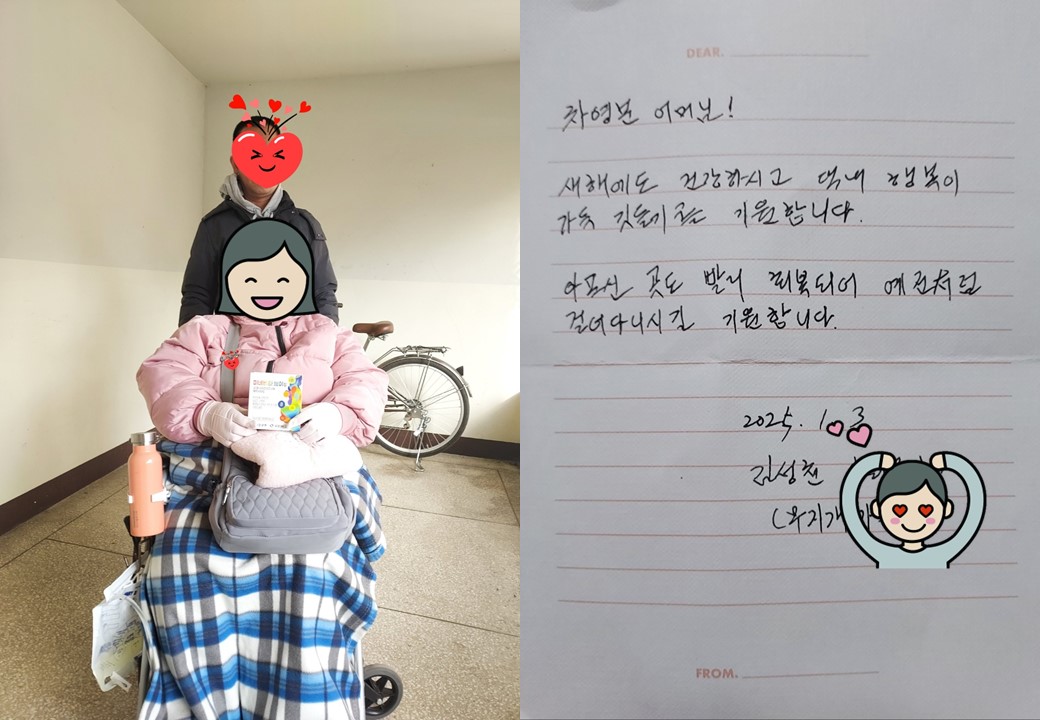 DEAR.
차영분 어머님!
새해에도 건강하시고 댁내 행복이
가득 깃들기를 기원합니다.
아프신 곳도 빨리 회복되어 예전처럼
걸어다니시길 기원합니다.
2025. 1. 3
김성천
FROM.